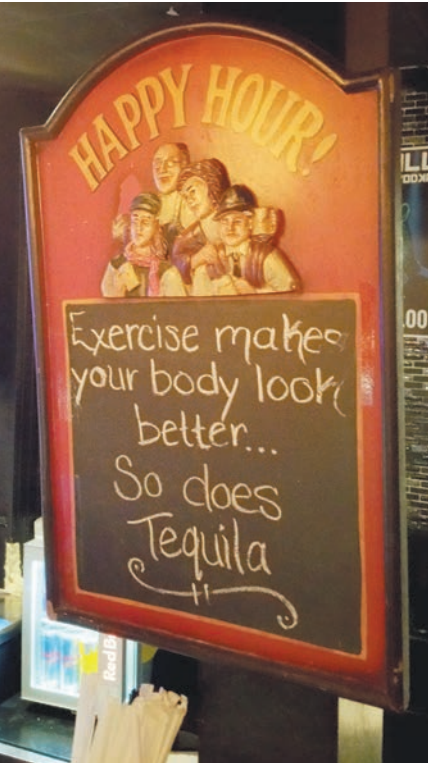 HAPPY HOUR!
Exercise makes
your body look
better...
So does
Tequila
.00